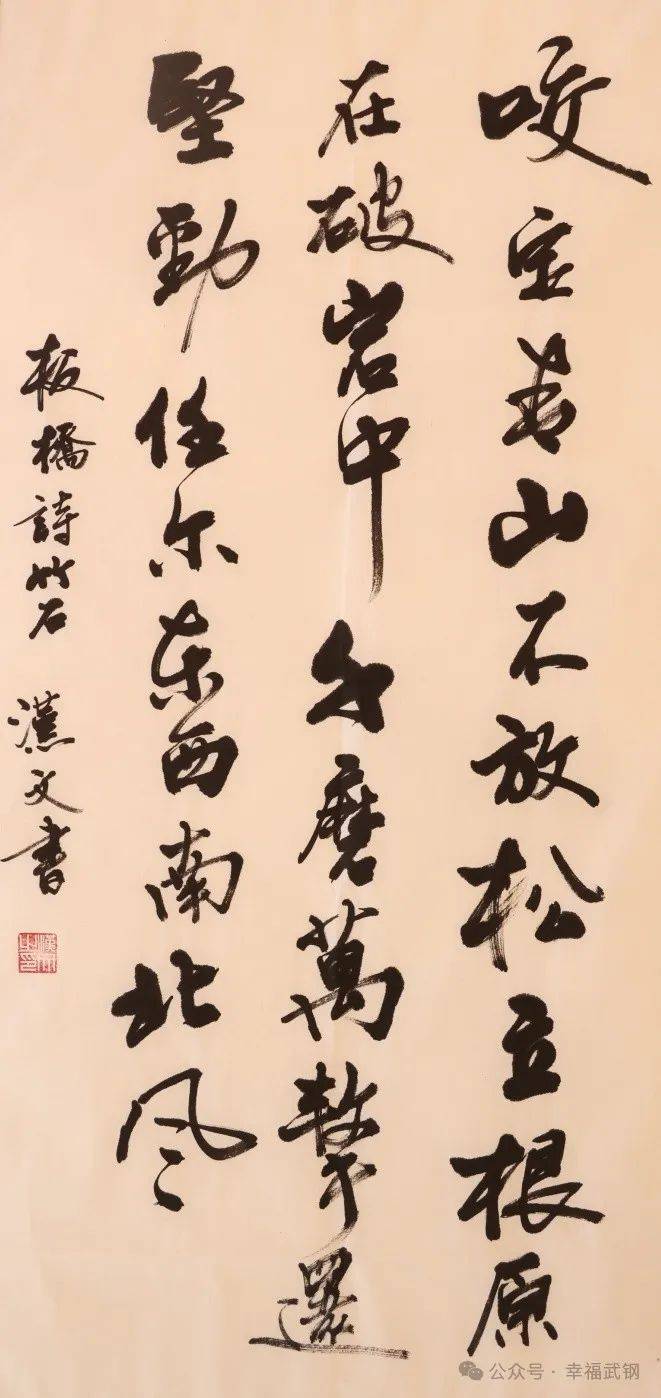 咬定青山不放松立根原
在破岩中千磨萬擊還
堅勁任尔東西南北風
板橋詩竹石 漢文書
公众号·幸福武钢